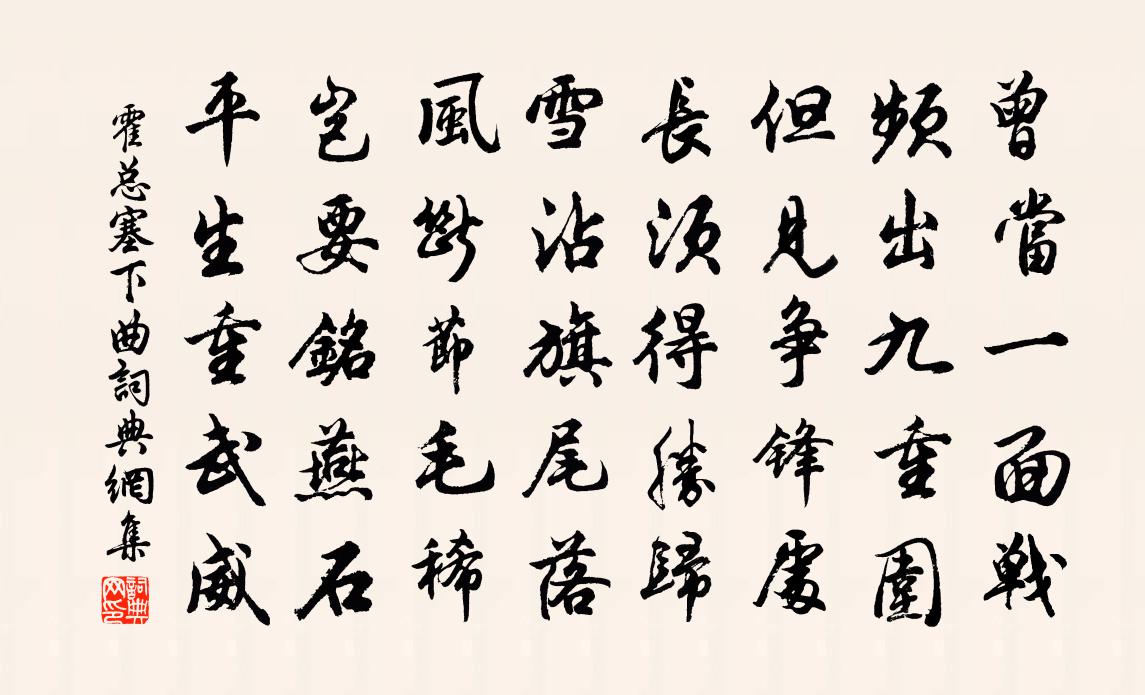 曾當一面戰
頻出九重圍
但見爭鋒處
長須得勝歸
雪沾旗尾落
風斷節毛稀
豈要銘燕石
平生重武威
霍总塞下曲詞典網集
詞典網印